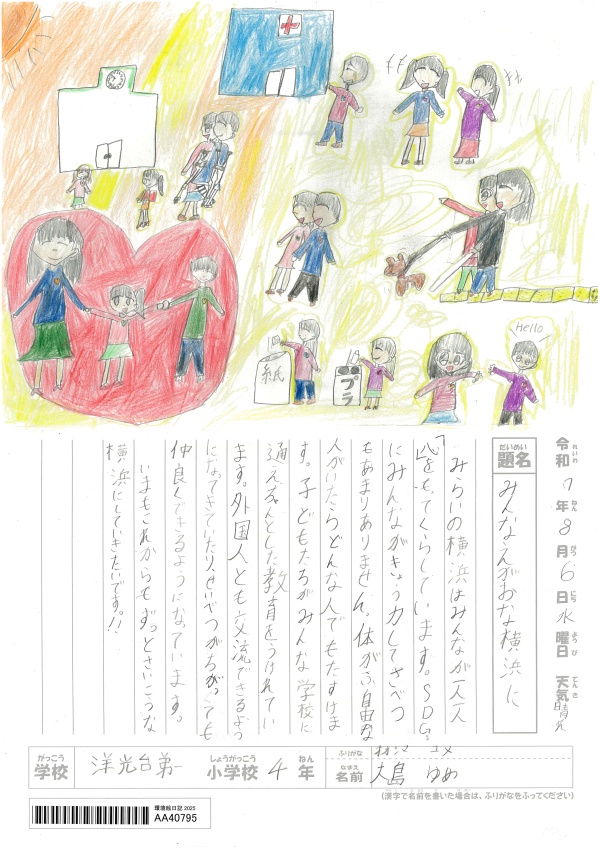 Hello
紙
プラ
令和7年8月6日水曜日 天気晴れ
れいわ ねん がつ にち ようび てんき
だいめい
題名
みんなえがおな横浜に
みらいの横浜はみんなが一人一人
「心をもってくらしています。SDGs
にみんながきょう力してさべつ
もあまりありません。体がふ自由な
人がいたらどんな人でもたすけま
す。子どもたちがみんな学校に
通えちゃんとした教育をうけれてい
ます。外国人とも交流できるよう
になってきていたり、せいべつがちがっても
仲良くできるようになっています。
いまもこれからもずっとさいこうな
横浜にしていきたいです。!!
がっこう しょうがっこう ねん ふりがな
学校 洋光台第一 小学校 4年 なまえ 名前 大島 ゆめ
(漢字で名前を書いた場合は、ふりがなをふってください)
環境絵日記 2025
AA40795